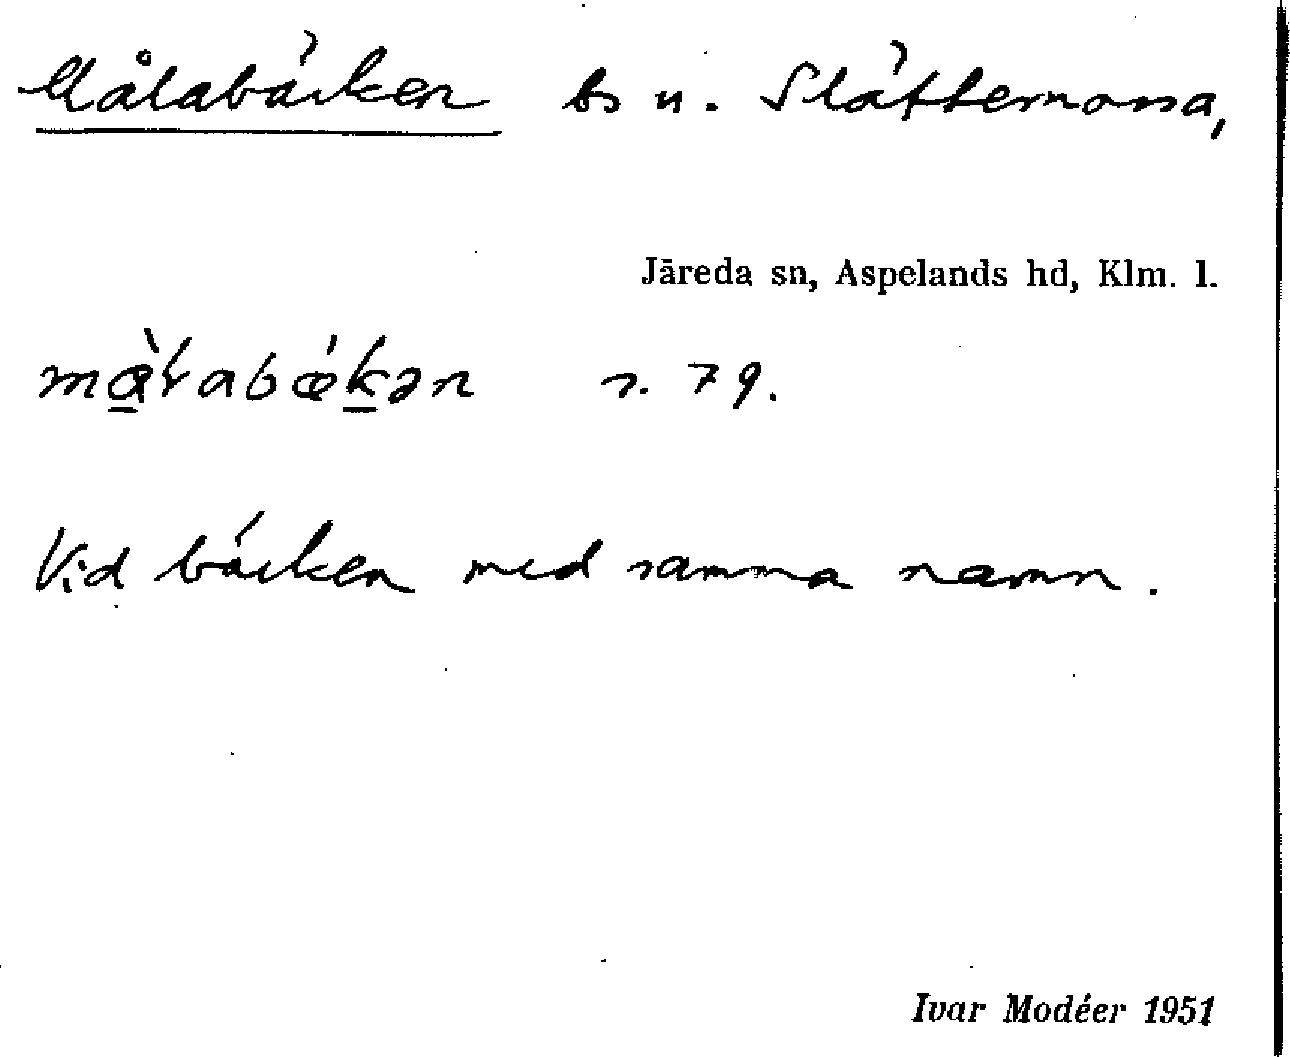 Målabäcken bs u. Slättemossa,
Järeda sn, Aspelands hd, Klm. l.
màɫabǽkən s. 79.
Vid bäcken med samma namn.
Ivar Modéer 1951